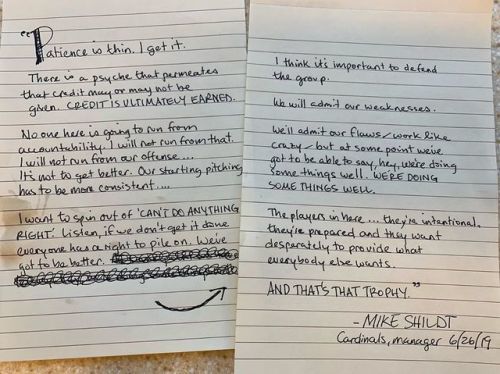 "Patience is thin. I get it.
There is a psyche that permeates
that credit may or may not be
given. CREDIT IS ULTIMATELY EARNED.
No one here is going to run from
accountability. I will not run from that.
I will not run from our offense...
It's not to get better. Our starting pitching
has to be more consistent....
I want to spin out of 'CAN'T DO ANYTHING
RIGHT'. Listen, if we don't get it done
everyone has a right to pile on. We've
got to be better.
I think it's important to defend
the group.
We will admit our weaknesses.
We'll admit our flaws/work like
crazy/but at some point we've
got to be able to say, hey, we're doing
some things well. WE'RE DOING
SOME THINGS WELL.
The players in here... they're intentional,
they're prepared and they want
desparately to provide what
everybody else wants.
AND THAT'S THAT TROPHY."
- MIKE SHILDT
Cardinals, manager 6/26/19